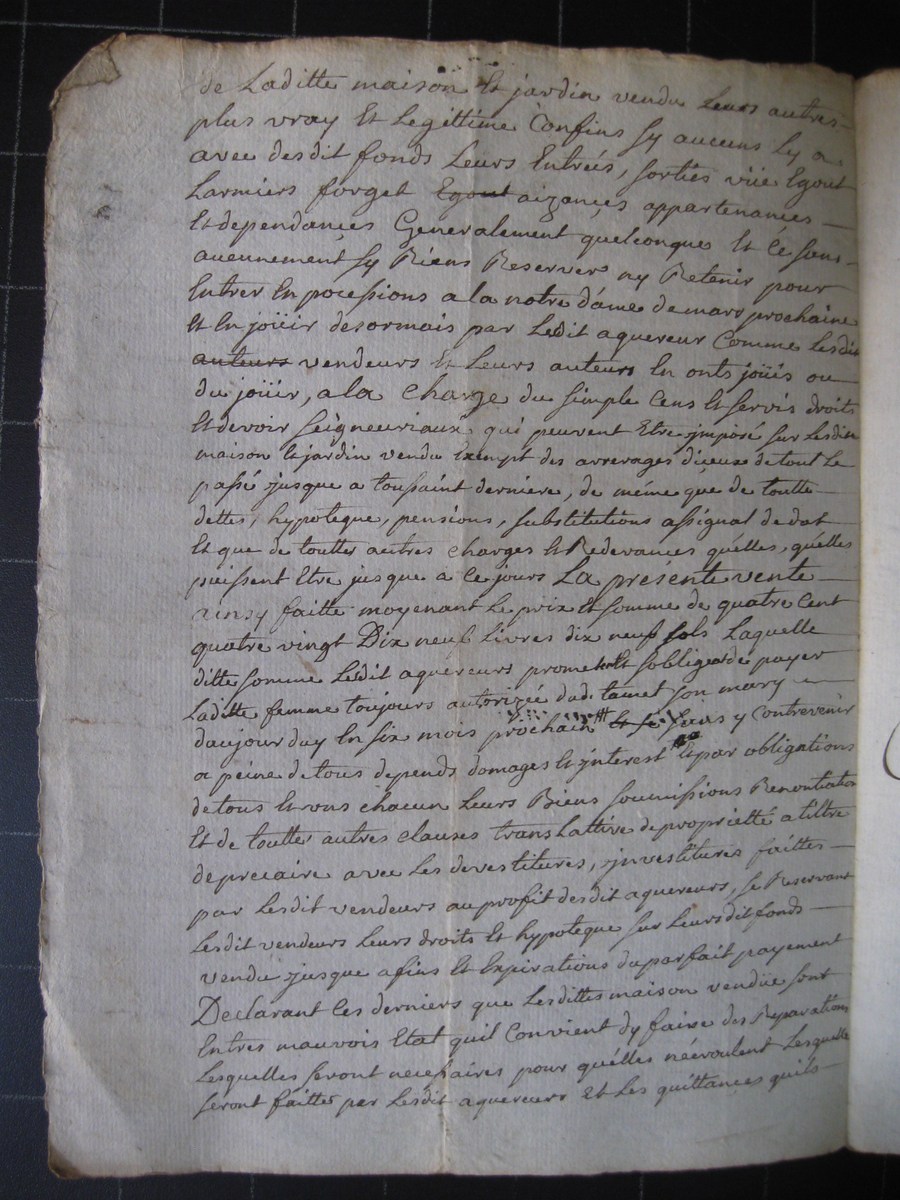 de Laditte maison Et jardin vendu Leurs autres
plus vray Et Legittime Confins sy aucuns Ly a
avec desdit fonds Leurs Entrées, sorties vüe Egout
Larmiers forget Egout aizançes appartenances
Et dependançes Generalement quelconque Et ce sans
aucunnement sy Riens Reservers ny Retenir pour
Entrer En pocessions a la notre dame de mars prochaine
Et En joüir desormais par Ledit aquereur Comme Lesdit
auteurs vendeurs Et Leurs auteurs En onts joüis ou
du joüir, a la Charge du simple Cens Et servis droits
Et devoir seigneuriaux qui peuvent Etre jmposé sur Lesdit
maison Et jardin vendu Exempt des arrerages diceux de tout Le
passé jusque a toussaint derniere, de méme que de toutte
dettes, hypoteque, pensions, substitutions assignal de dot
Et que de touttes autres charges Et Redevances quélles, quélles
puissent Etre jusque a ce jours La présente vente
ainsy faitte moyenant Le prix Et somme de quatre Cent
quatre vingt Dix neuf Livres dix neuf sols Laquelle
ditte somme Ledit aquereurs promettent Et sobligent de payer
Laditte femme toujours autorizée dud. tamet son mary
daujourduy En six mois prochain y Contrevenir
a peine de tous depends domages Et jnterest Et par obligations
de tous Et uns chacun Leurs Biens soumissions Renontiation
Et de touttes autres clauses translattive de proprietté a tiltre
de precaire avec Les devestitures, jnvestitures faittes
par Lesdit vendeurs au profit desdit aquereurs, se Reservant
Lesdit vendeurs Leurs droits Et hypoteque sur Leursdit fonds
vendu jusque a fins Et Expirations du parfait payement
Declarant Ces derniers que Lesdittes maison vendüe sont
Entres mauvois Etat quil Convient dy faire des Reparations
Lesquelles seront necessaires pour quélles néévoulent Lesquelle
seront faittes par Lesdit aquereurs Et Les quittances quils